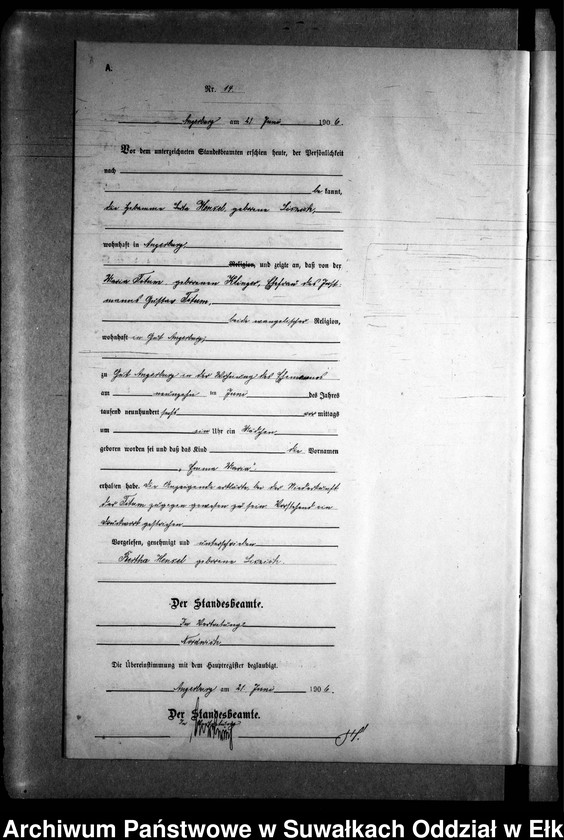 A.
Nr. 14.
Angerburg am 21 Juni 1906.
Vor dem unterzeichneten Standesbeamten erschien heute, der Persönlichkeit
nach
be kannt,
die Hebamme Henkel, geborene
wohnhaft in Angerburg
Religion, und zeigte an, daß von der
Maria geborenen Klinger, Ehefrau des
Gustav
beide evangelischer Religion,
wohnhaft in Gut Angerburg,
zu Gut Angerburg in der Wohnung des Ehemannes
am neunzehn ten Juni des Jahres
tausend neunhundert sechs vor mittags
um ein Uhr ein Mädchen
geboren worden sei und daß das Kind die Vornamen
„Emma Maria"
erhalten habe. Die Anzeigende erklärte, bei der Niederkunft
der zugegen gewesen zu sein. Vorstehend ein
Druckwort gestrichen
Vorgelesen, genehmigt und unterschrieben
Bertha Henkel geborene
Der Standesbeamte.
In Vertretung:
Die Übereinstimmung mit dem Hauptregister beglaubigt.
Angerburg am 21 Juni 1906.
Der Standesbeamte.
In Vertretung
Archiwum Państwowe w Suwałkach Oddział w Ełk